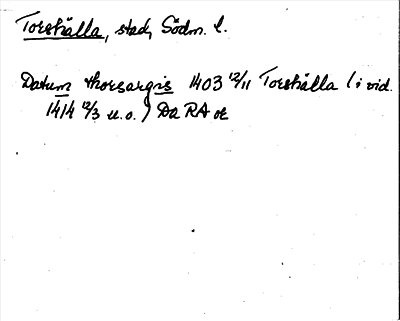 Torshälla, stad, Södm. l.
Datum thorsargis 1403 12/11 Torshälla (i vid.
1414 12/3 u.o.) Da RA or